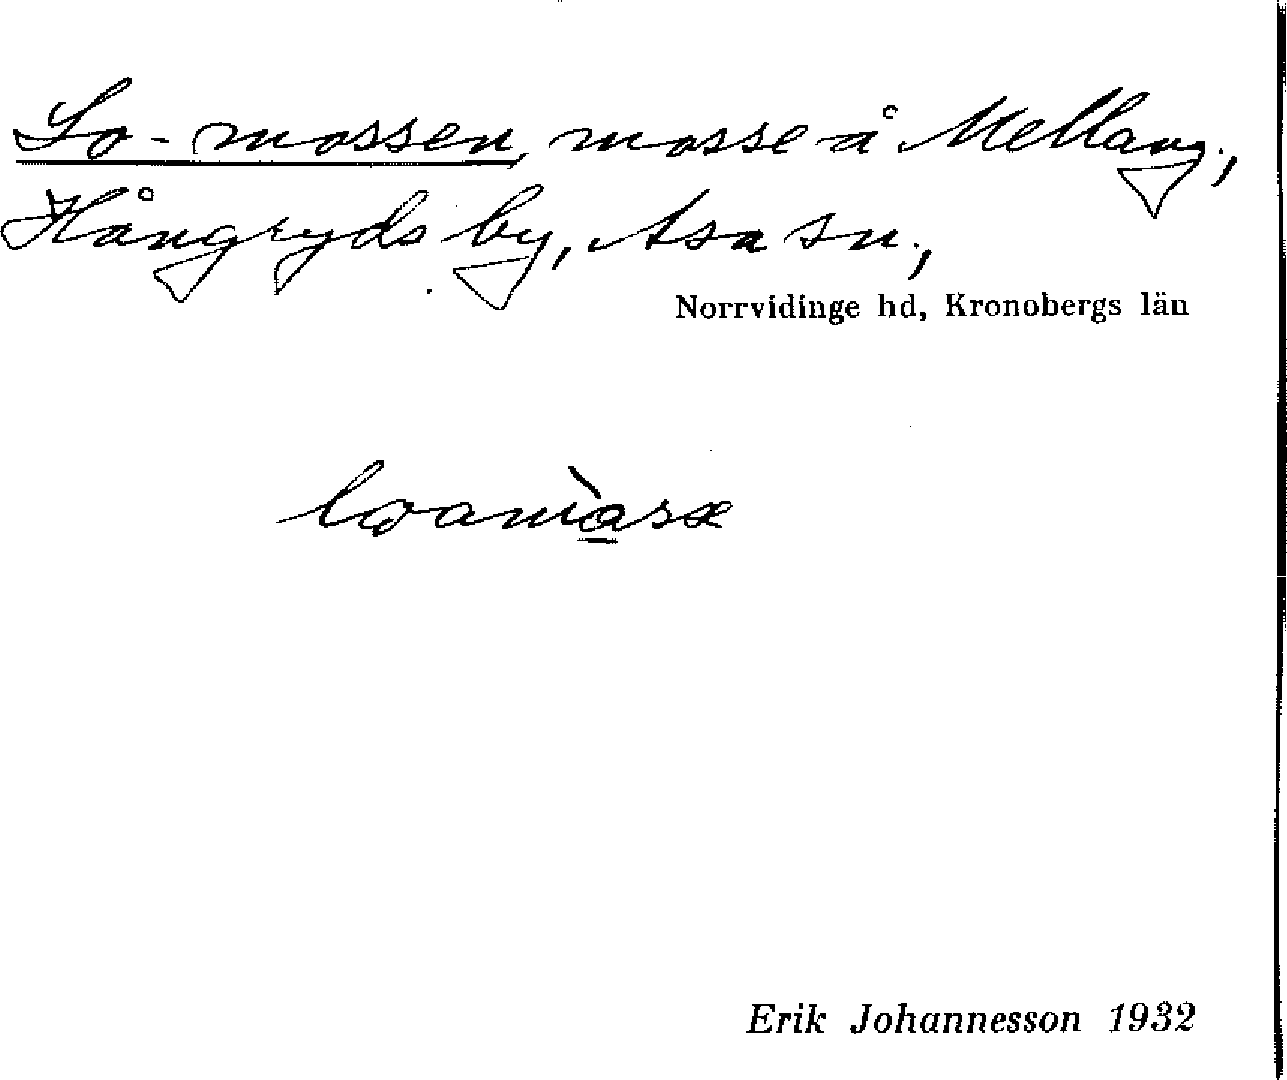 Lo-mossen, mosse å Mellang.,
Hångryds by, Asa sn.,
Norrvidinge hd, Kronobergs län
Erik Johannesson 1932